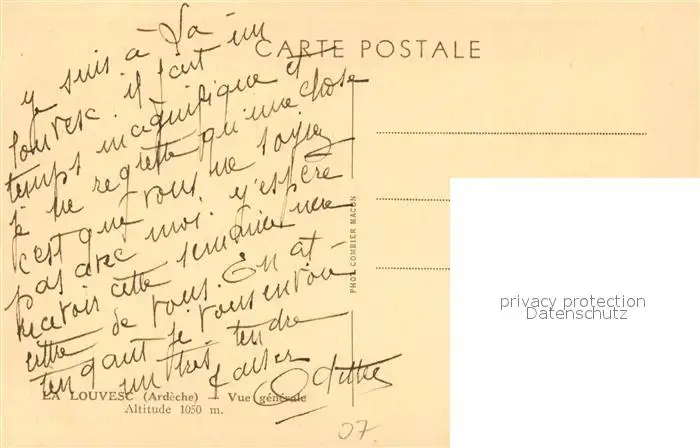 CARTE POSTALE
je suis à La
Louvesc. il fait un
temps magnifique et
je ne regrette qu'une chose
c'est que vous ne soyiez
pas avec moi. j'espère
recevoir cette semaine une
lettre de vous. En at-
tendant je vous envoie
un très tendre
baiser
Odette
PHOT COMBIER MACON
LA LOUVESC (Ardèche) — Vue générale
Altitude 1050 m.
07
privacy protection
Datenschutz